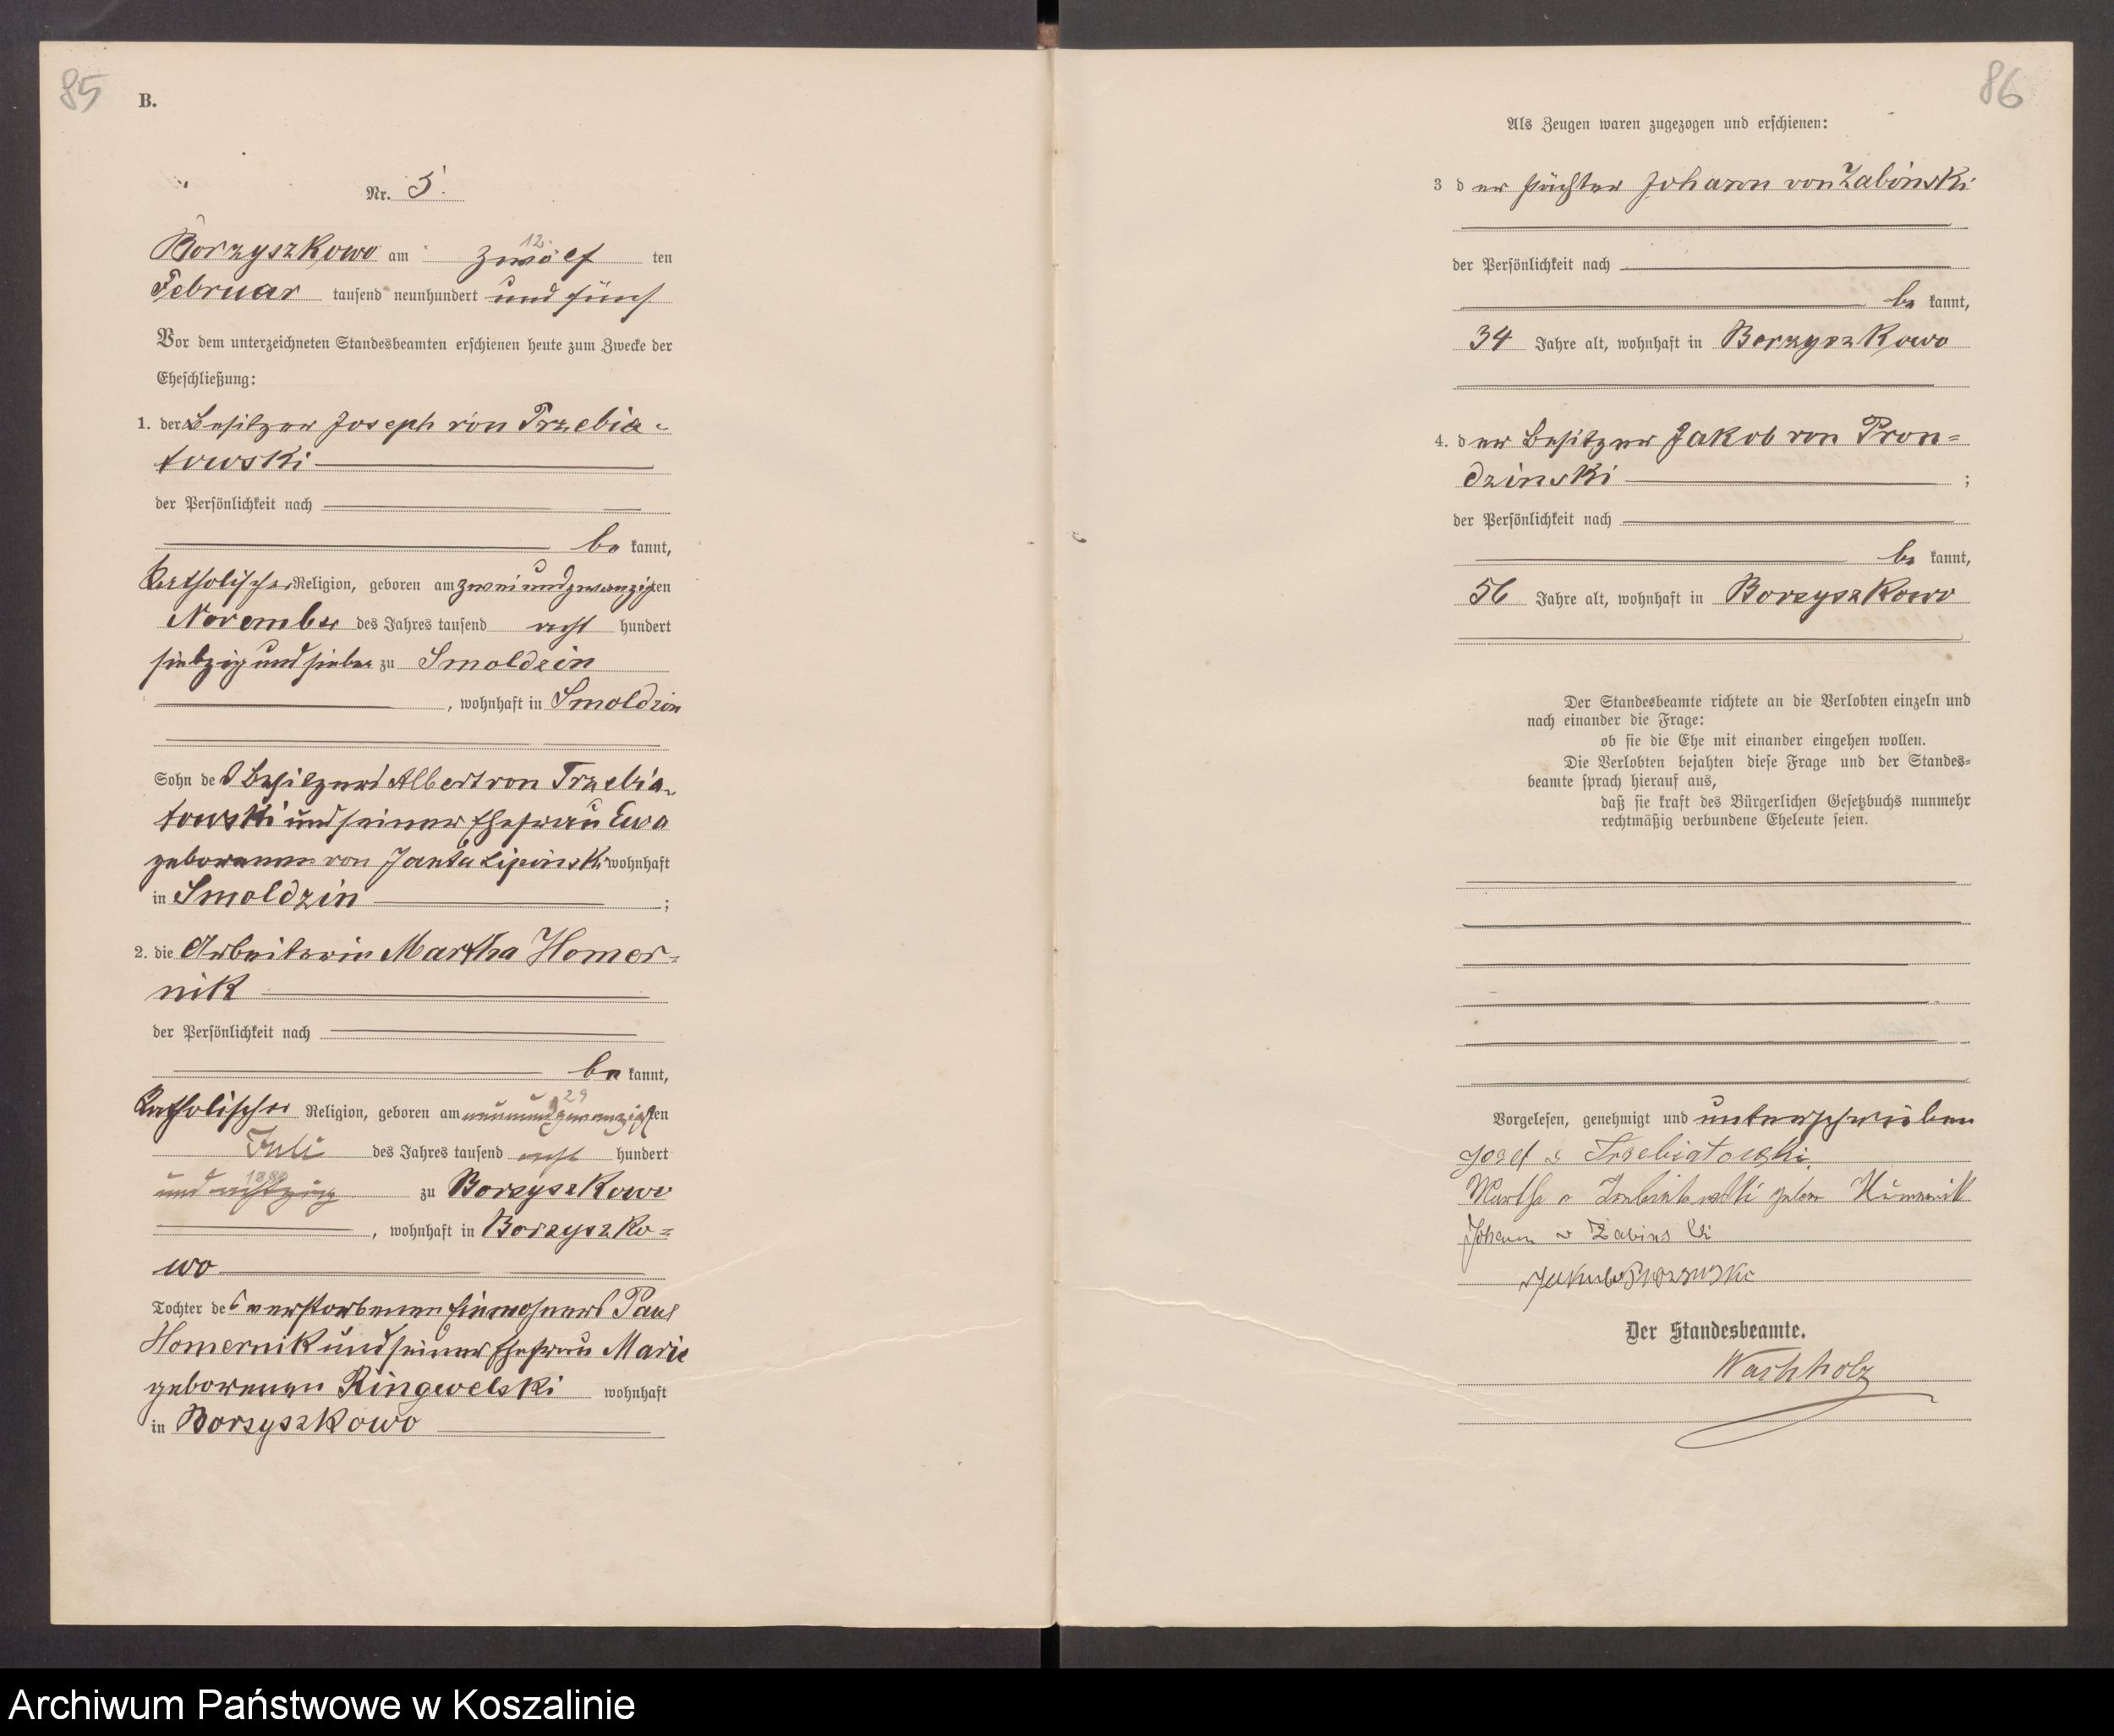 85
B.
Nr. 5.
12.
Borzyszkowo am zwölf ten
Februar tausend neunhundert und fünf
Vor dem unterzeichneten Standesbeamten erschienen heute zum Zwecke der
Eheschließung:
1. der Besitzer Joseph von Trzebia-
towski
der Persönlichkeit nach
be kannt,
katholischer Religion, geboren am zweiundzwanzigten
November des Jahres tausend acht hundert
siebzig und sieben zu Smoldzin
, wohnhaft in Smoldzin
Sohn des Besitzers Albert von Trzebia-
towski und seiner Ehefrau Eva
geborenen von Janta Lipinski wohnhaft
in Smoldzin ;
2. die Arbeiterin Martha Homer-
nik
der Persönlichkeit nach
be kannt,
29
katholischer Religion, geboren am neunundzwanzigten
Juli des Jahres tausend acht hundert
1880
und achtzig zu Borzyszkowo
, wohnhaft in Borzyszko-
wo
Tochter des verstorbenen Einwohners Paul
Homernik und seiner Ehefrau Marie
geborenen Ringwelski wohnhaft
in Borzyszkowo
86
Als Zeugen waren zugezogen und erschienen:
3 der Pächter Johann von Zabinski
der Persönlichkeit nach
be kannt,
34 Jahre alt, wohnhaft in Borzyszkowo
4. der Besitzer Jakob von Pron-
dzinski ;
der Persönlichkeit nach
be kannt,
56 Jahre alt, wohnhaft in Borzyszkowo
Der Standesbeamte richtete an die Verlobten einzeln und
nach einander die Frage:
ob sie die Ehe mit einander eingehen wollen.
Die Verlobten bejahten diese Frage und der Standes-
beamte sprach hierauf aus,
daß sie kraft des Bürgerlichen Gesetzbuchs nunmehr
rechtmäßig verbundene Eheleute seien.
Vorgelesen, genehmigt und unterschrieben
Josef v Trzebiatowski
Martha v Trzebiatowski geborn
Johann v Zabinski
Der Standesbeamte.
Warhholz
Archiwum Państwowe w Koszalinie